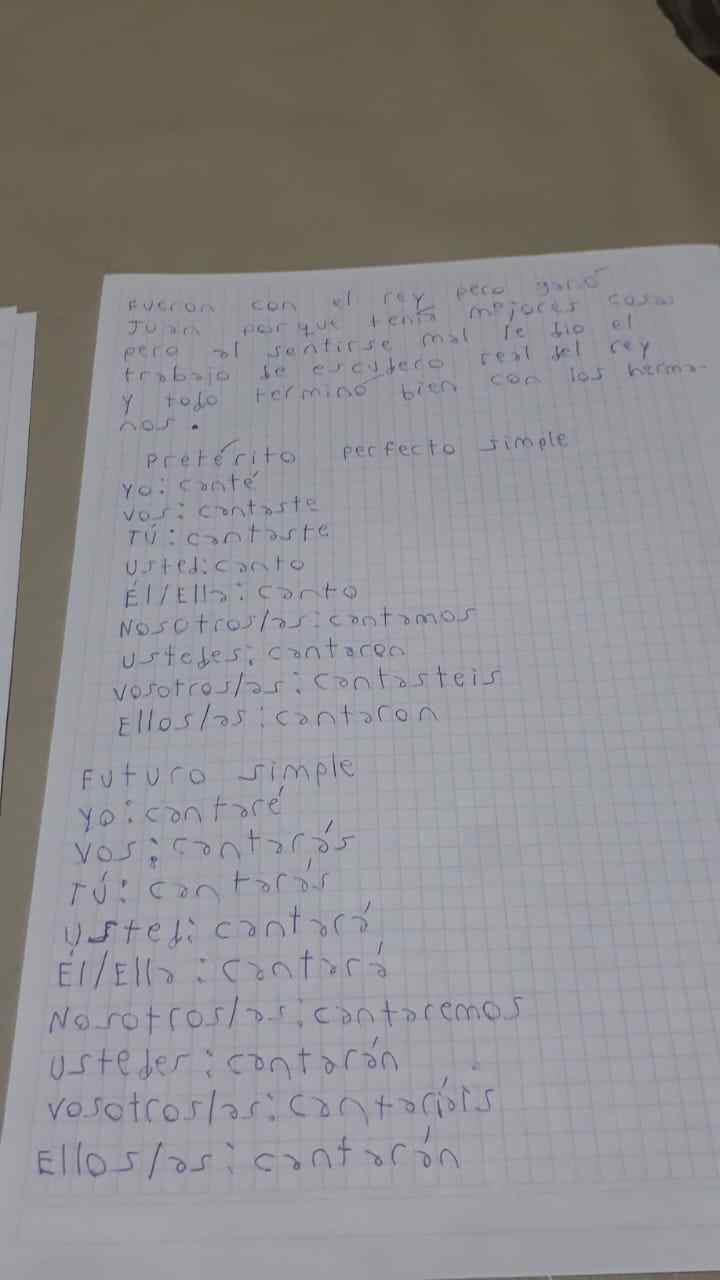 Fueron con el rey pero ganó
Juan porque tenía mejores cosas
pero al sentirse mal le dio el
trabajo de escudero real del rey
y todo terminó bien con los herma-
nos.
Pretérito perfecto simple
Yo: conté
Vos: contaste
TÚ: contaste
Usted: conto
Él/Ella: conto
Nosotros/as: contamos
Ustedes: contaron
Vosotros/as: contasteis
Ellos/as: contaron
Futuro simple
Yo: contaré
Vos: contarás
TÚ: contarás
Usted: contará
Él/Ella: contará
Nosotros/as: contaremos
Ustedes: contarán
Vosotros/as:
Ellos/as: contarán